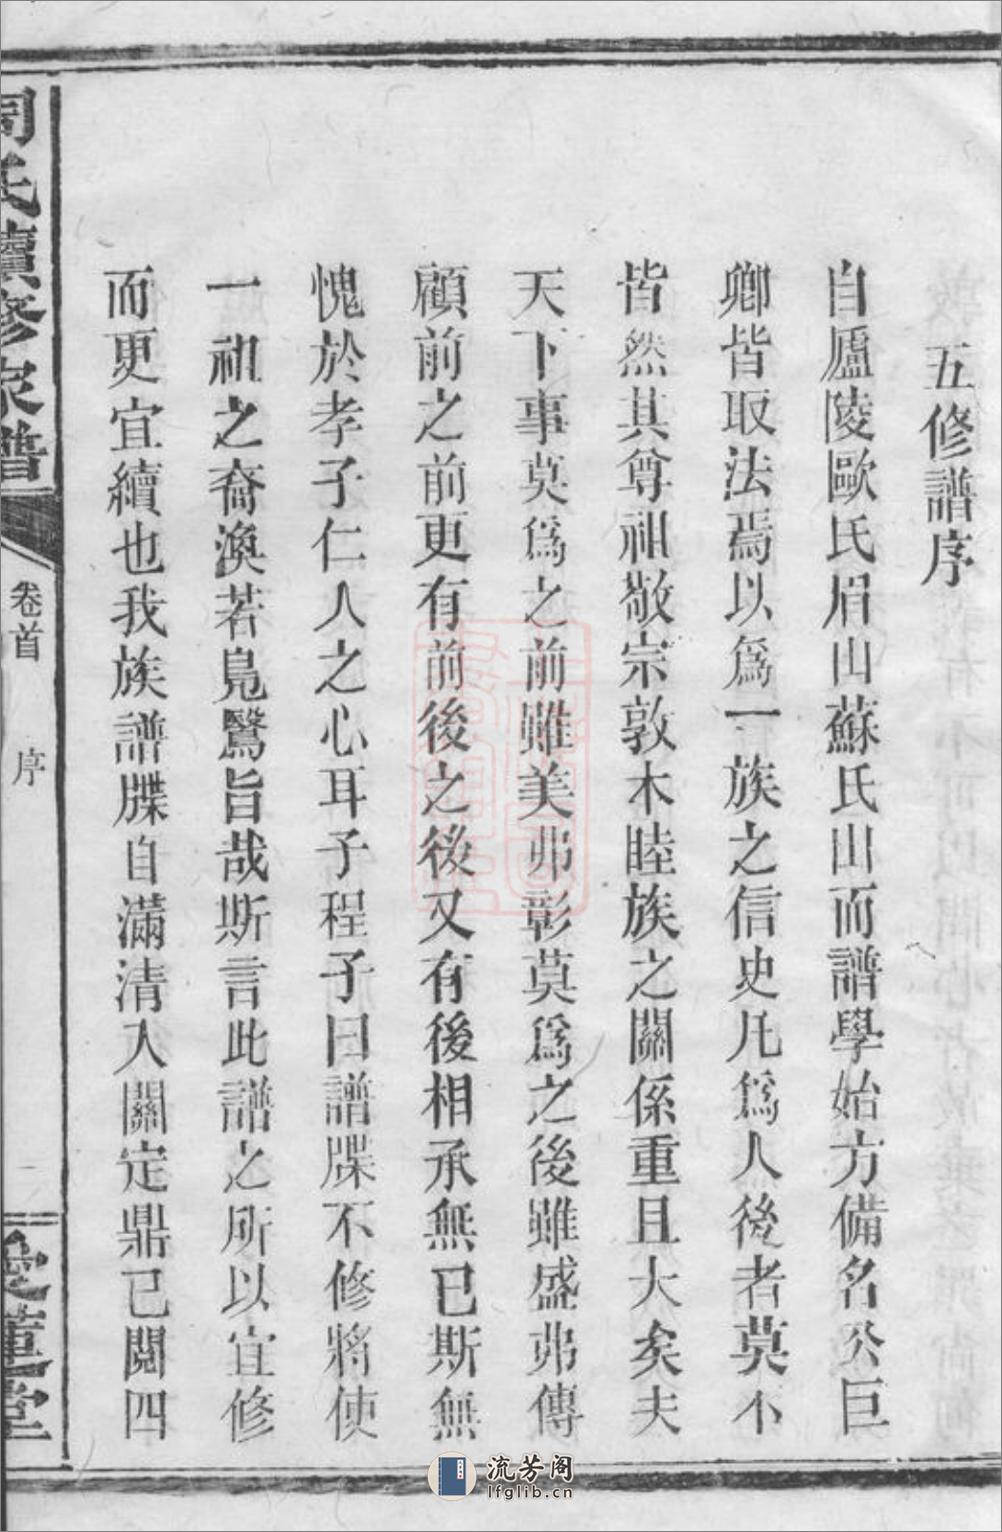 五修譜序
自廬陵歐氏眉山蘇氏出而譜學始方備名公巨
卿皆取法焉以爲一族之信史凡爲人後者莫不
皆然其尊祖敬宗敦本睦族之關係重且大矣夫
天下事莫爲之前雖美弗彰莫爲之後雖盛弗傳
顧前之前更有前後之後又有後相承無已斯無
愧於孝子仁人之心耳子程子曰譜牒不修將使
一祖之裔渙若鳧鷖旨哉斯言此譜之所以宜修
而更宜續也我族譜牒自滿清入關定鼎已閱四
周氏續修家譜
卷首
序
一
愛蓮堂
流芳阁
lfglib.cn